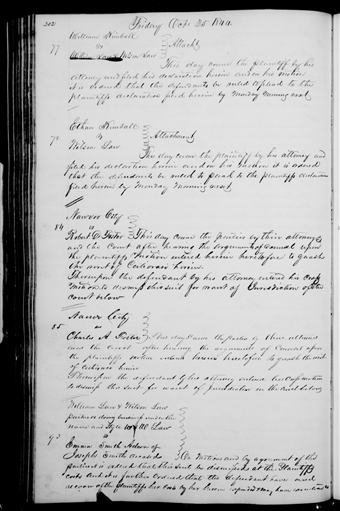 202 Friday Oct. 25 1844
William Kimball
77 vs Attacht
William Law & Wilson Law
This day came the plaintiff by his
attorney and filed his declaration herein and on his motion
it is ordered that the defendants be ruled to plead to the
plaintiffs declaration filed herein by Monday morning next
Ethan Kimball
78 vs Attachment
Wilson Law
This day came the plaintiff by his attorney and
filed his declaration herein and on his motion it is ordered
that the defendants be ruled to plead to the plaintiffs declaration
filed herein by Monday morning next.
Nauvoo City
84 vs
Robert D. Foster This day came the parties by their attorneys
and the Court after hearing the argument of counsel upon
the plaintiffs motion entered herein heretofore to quash
the writ of Certiorari herein.
Thereupon the defendant by his attorney entered his cross
motion to dismiss this suit for want of Jurisdiction of the
court below
Nauvoo City
85 vs
Charles A. Foster This day came the parties by their attorneys
and the Court after hearing the argument of Counsel upon
the plaintiffs motion entered herein heretofore to quash the writ
of Certiorari herein
Thereupon the defendant by his attorney entered his Cross motion
to dismiss this suit for want of jurisdiction in the court below
William Law & Wilson Law
partners doing business under the
name and Style of W & W Law
93 vs
Emma Smith Widow of
Joseph Smith deceased On motion and by agreement of the
parties it is ordered that this suit be dismissed at the Plaintiffs
costs and it is further ordered that the defendant have and
recover of the plaintiffs her costs by her herein expended &c